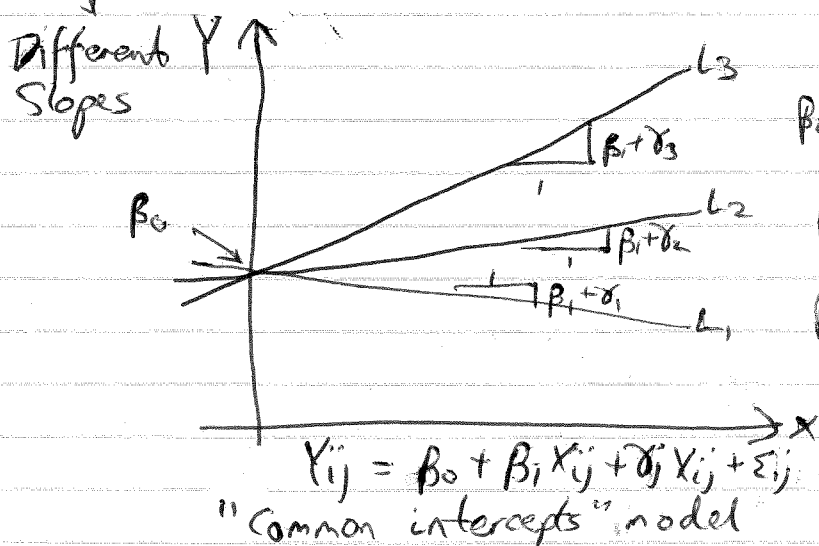 Different Y
Slopes
L3
β1+γ3
1
β0
L2
β1+γ2
1
1
β1+γ1
L1
X
Yij = β0 + β1 Xij + γj Xij + εij
"Common intercepts" model